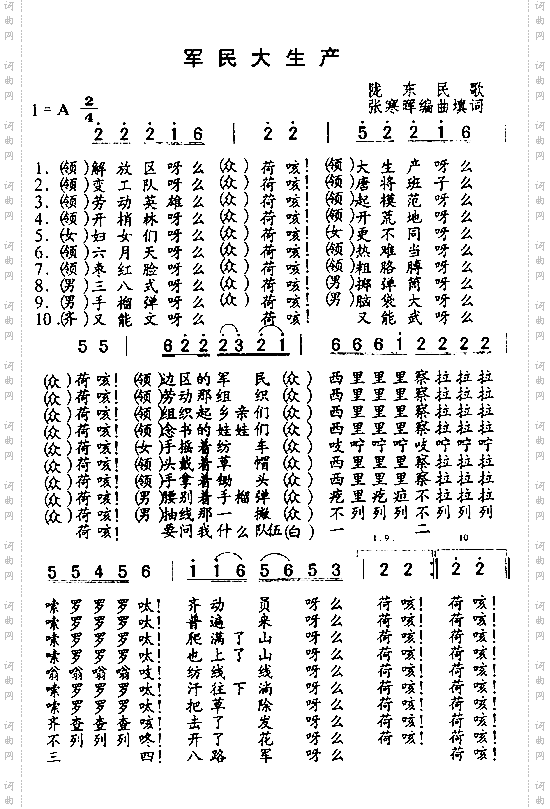 军民大生产
陇东民歌
1=A 2/4
张寒晖编曲填词
2 2 2 1 6 | 2 2 | 5 2 2 1 6 |
1.(领)解放区呀么(众)荷咳!(领)大生产呀么
2.(领)变工队呀么(众)荷咳!(领)唐将班子么
3.(领)劳动英雄么(众)荷咳!(领)起模范呀么
4.(领)开梢林呀么(众)荷咳!(领)开荒地呀么
5.(女)妇女们呀么(众)荷咳!(女)更不同呀么
6.(领)六月天呀么(众)荷咳!(领)热难当呀么
7.(领)枣红脸呀么(众)荷咳!(领)粗胳膊呀么
8.(男)三八式呀么(众)荷咳!(男)掷弹筒呀么
9.(男)手榴弹呀么(众)荷咳!(男)脑袋大呀么
10.(齐)又能文呀么 荷咳! 又能武呀么
5 5 | 6 2 2 2 3 2 1 | 6 6 6 6 1 2 2 2 2 |
(众)荷咳!(领)边区的军民(众)西里里里察拉拉拉
(众)荷咳!(领)劳动组织(众)西里里里察拉拉拉
(众)荷咳!(领)组织起乡亲们(众)西里里里察拉拉拉
(众)荷咳!(领)念书的娃娃们(众)西里里里察拉拉拉
(众)荷咳!(女)手摇着纺车(众)吱咛咛咛吱咛咛咛
(众)荷咳!(领)头戴着草帽(众)西里里里察拉拉拉
(众)荷咳!(领)手拿着锄头(众)西里里里察拉拉拉
(众)荷咳!(男)腰别着手榴弹(众)
(众)荷咳!(男)抽线那一撇(众)
荷咳! 要问我什么队伍(白)一二
1.9. 10
5 5 5 4 5 6 | 1 1 6 5 6 5 3 | 2 2 :| 2 2 ‖
嗦罗罗罗呔! 齐动员呀么 荷咳! 荷咳!
嗦罗罗罗呔! 普遍来呀么 荷咳!
嗦罗罗罗呔! 爬满了山呀么 荷咳!
嗦罗罗罗呔! 也上了山呀么 荷咳!
嗡嗡嗡嗡吱! 纺线线呀么 荷咳!
嗦罗罗罗呔! 汗往下淌呀么 荷咳!
嗦罗罗罗呔! 把草除呀么 荷咳!
齐查查查咳! 去了发呀么 荷咳!
不列列列咚! 开了花呀么 荷咳!
三四 八路军呀么 荷咳!
词曲网